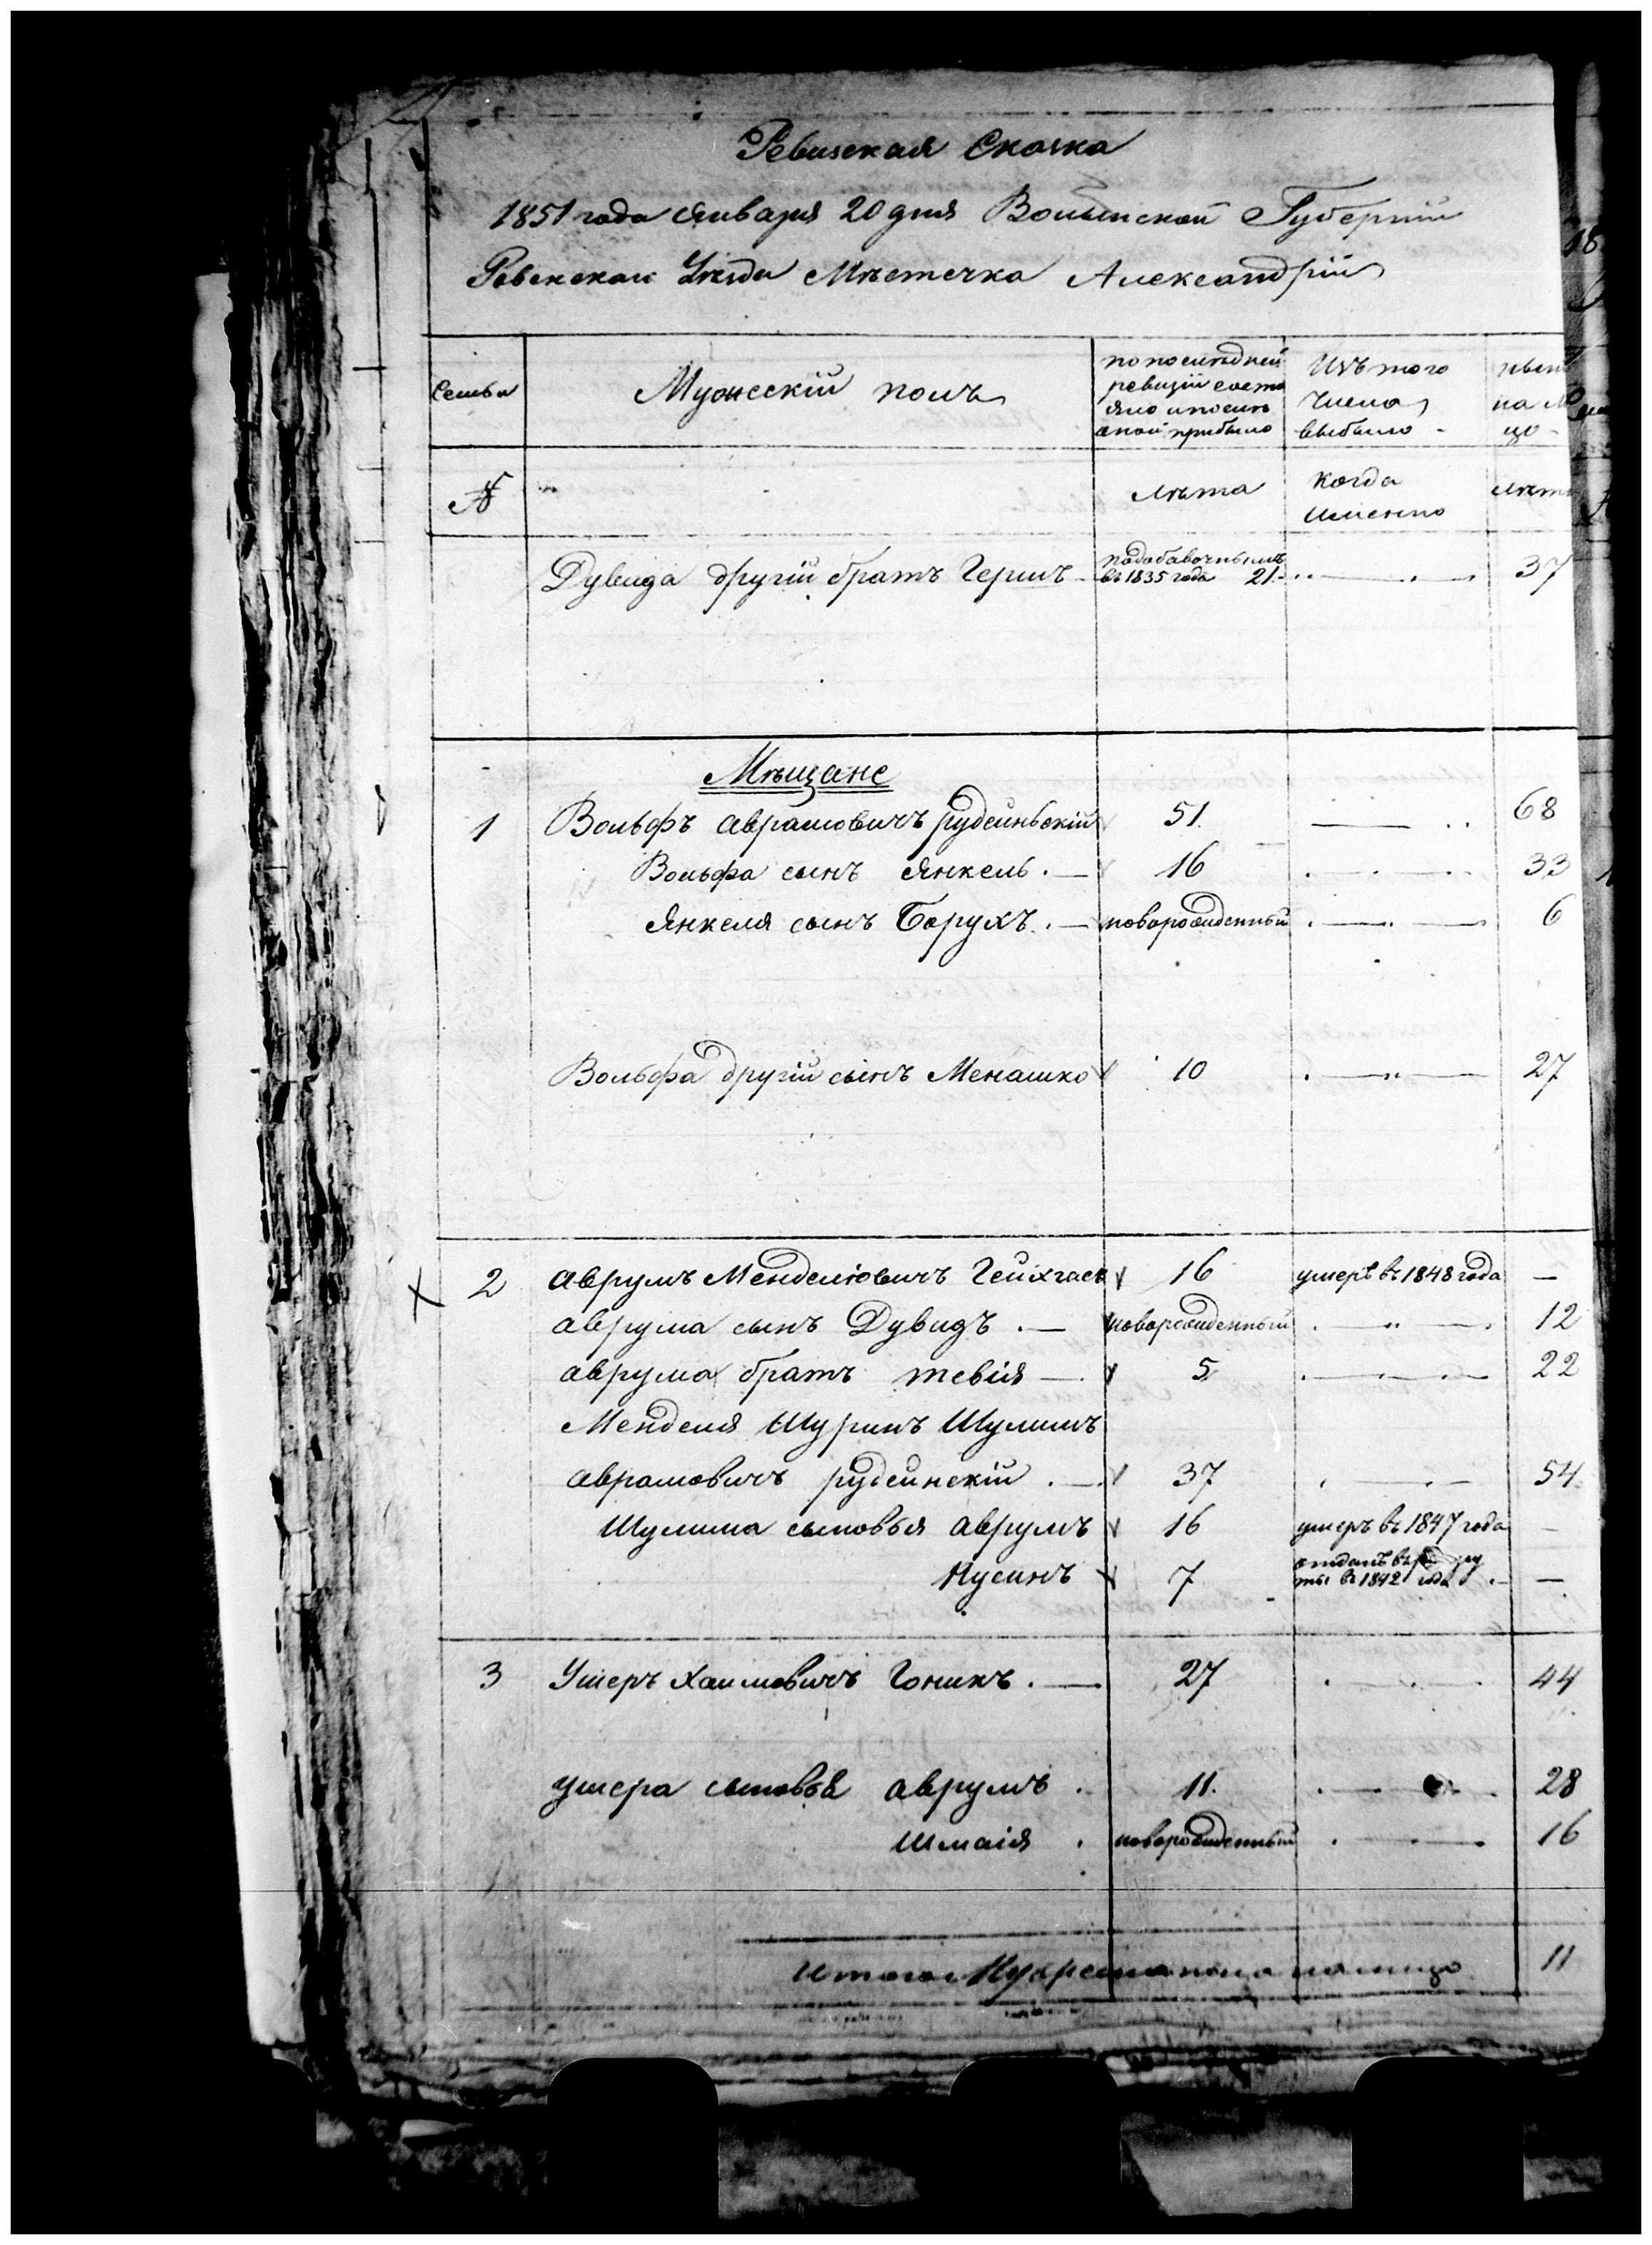 Ревизская Сказка
1851 года Января 20 дня Волынской Губерніи
Ровенскаго Уезда Мѣстечка Александріи
Семьи
Мужескій полъ
по последней
ревизіи состо
яло и после
оной прибыло
Изъ того
числа
выбыло
ныне
на ли
цо
№
лѣта
Когда
именно
лѣта
Дувида другій братъ Гершъ
въ 1835 года 21. 37
Мѣщане
1 Вольфъ Аврамовичъ рудеиньскій 51. 68
Вольфа сынъ Янкель. 16 33
Янкеля сынъ Борухъ. новорожденный 6
Вольфа другій сынъ Менашко 10 27
2 Аврумъ Менделіовичъ 16 умеръ въ 1848 года —
Аврума сынъ Дувидъ. новорожденный 12
Аврума братъ тевія 5 22
Менделя Шуринъ Шулимъ
Аврамовичъ рудеинскій 37 54.
Шулима сыновья Аврумъ 16 умеръ въ 1847 года —
Нусинъ 7 отданъ въ
ты въ 1842 года —
3 Ушеръ Хаимовичъ Гоникъ. 27 44
Ушера сыновья Аврумъ 11. 28
Шмаія новорожденный 16
Итого Мужеска пола на лицо 11